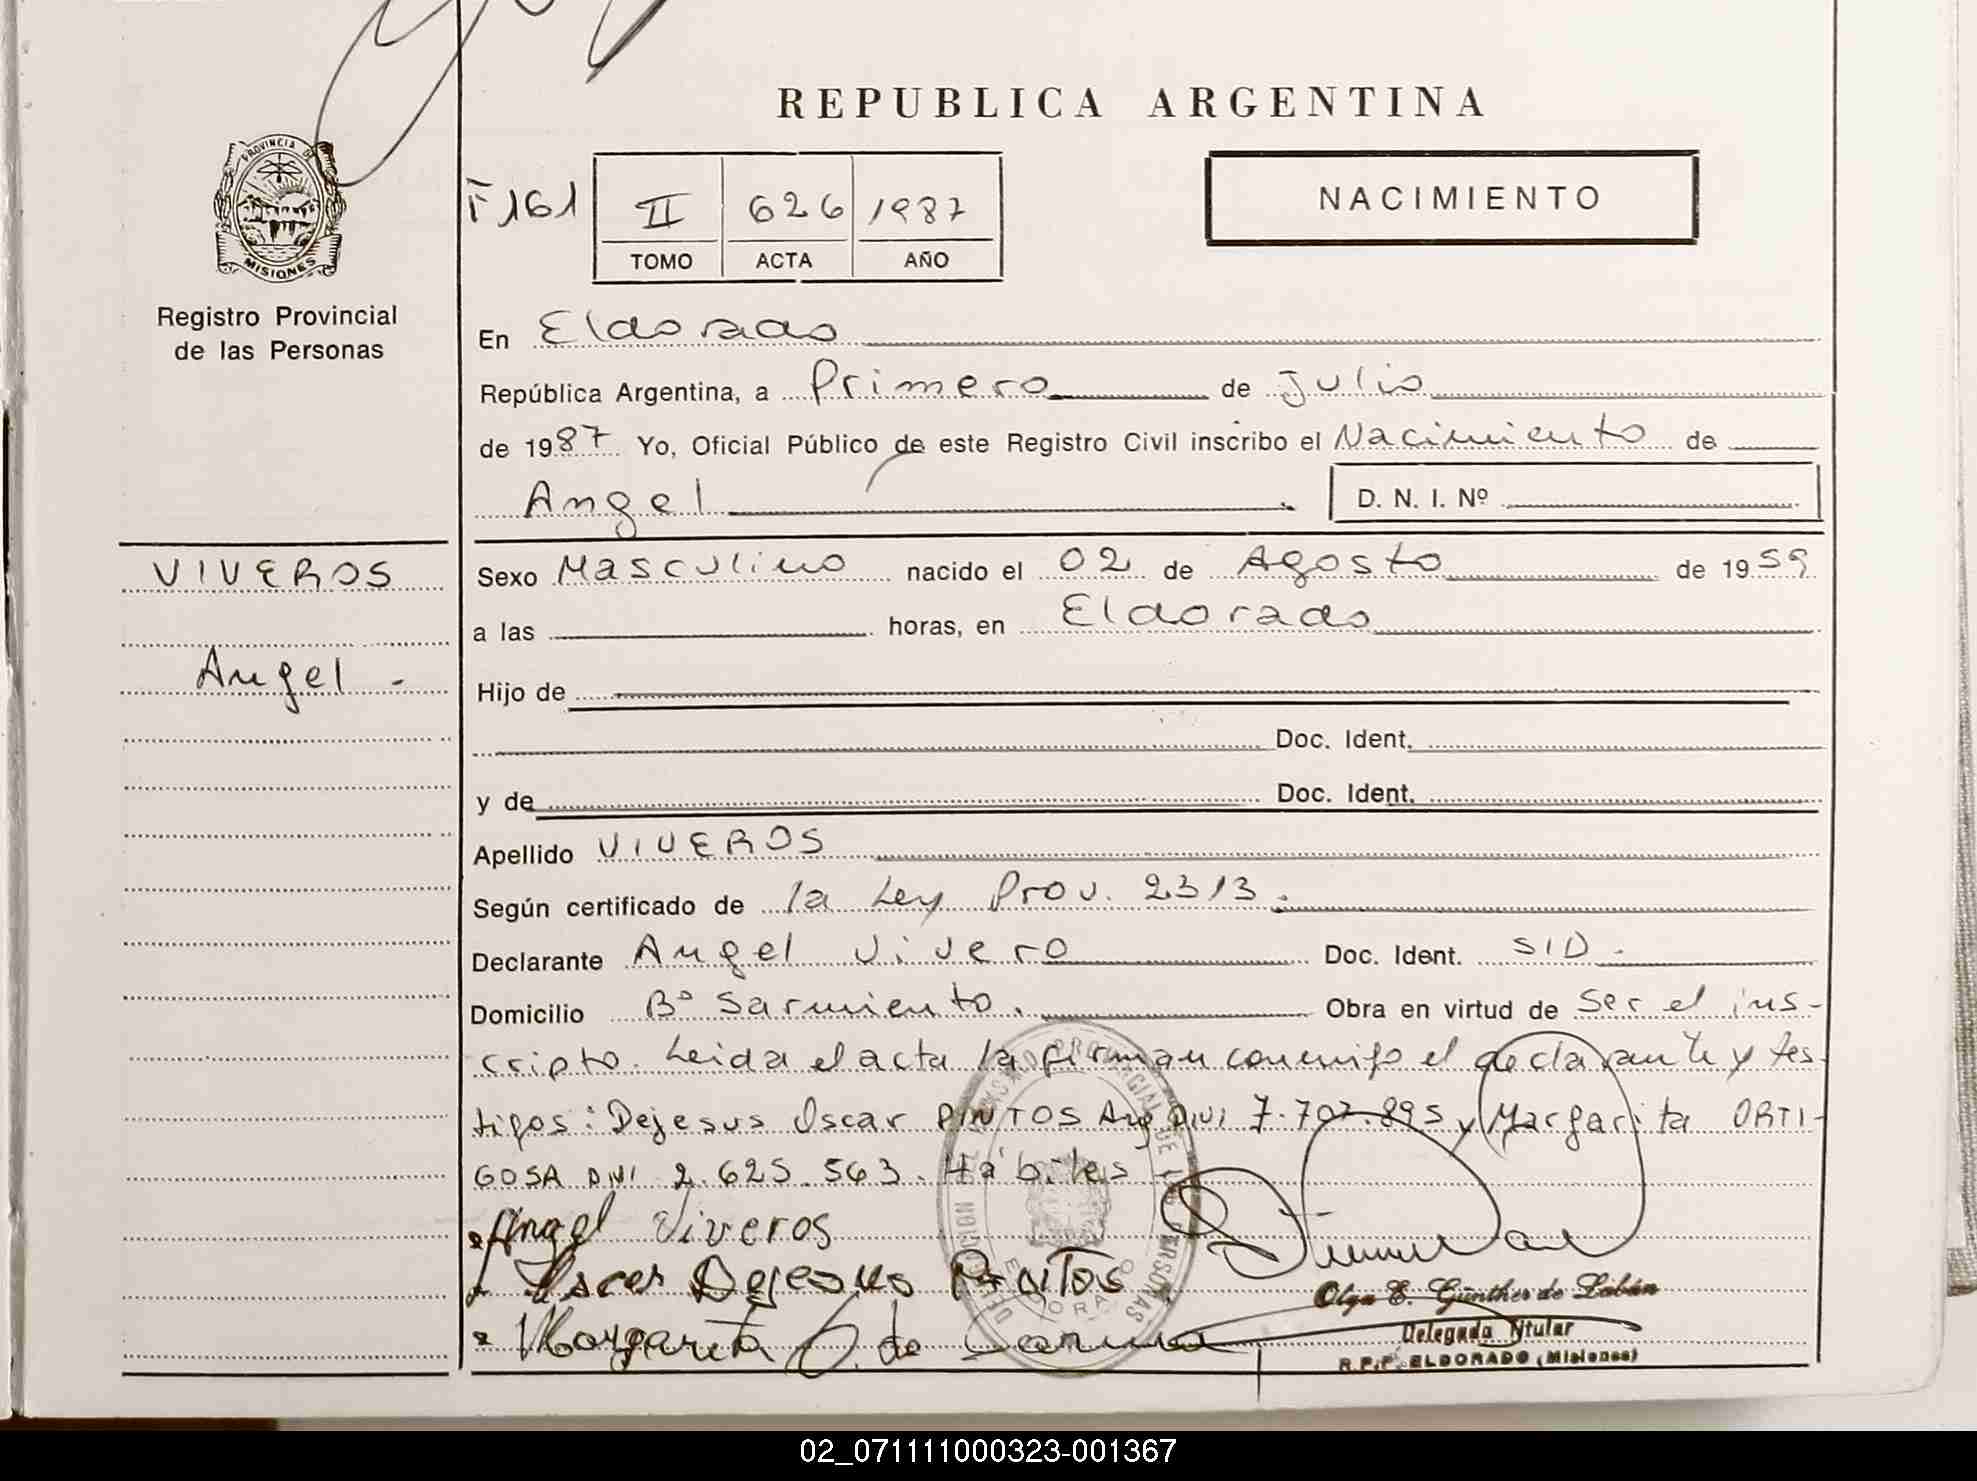 REPUBLICA ARGENTINA
PROVINCIA DE
MISIONES
Registro Provincial
de las Personas
F 161
II 626 1987
TOMO ACTA AÑO
NACIMIENTO
En Eldorado
República Argentina, a Primero de Julio
de 1987 Yo, Oficial Público de este Registro Civil inscribo el Nacimiento de
Angel D. N. I. Nº
VIVEROS
Angel -
Sexo Masculino nacido el 02 de Agosto de 1959
a las horas, en Eldorado
Hijo de
Doc. Ident.
y de Doc. Ident.
Apellido VIVEROS
Según certificado de la Ley Prov. 2313.
Declarante Angel Vivero Doc. Ident. S/D.
Domicilio Bº Sarmiento. Obra en virtud de Ser el ins-
cripto. Leida el acta la firman conmigo el declarante y tes-
tigos: Dejesus Oscar PINTOS Arg DNI 7.707.895 y Margarita ORTI-
GOSA DNI 2.625.563. Hábiles
Angel Viveros
Oscar Dejesus Pintos
Margarita O. de
Olga E. Günther de Labán
Delegada Titular
R.P.P. ELDORADO (Misiones)
02_071111000323-001367